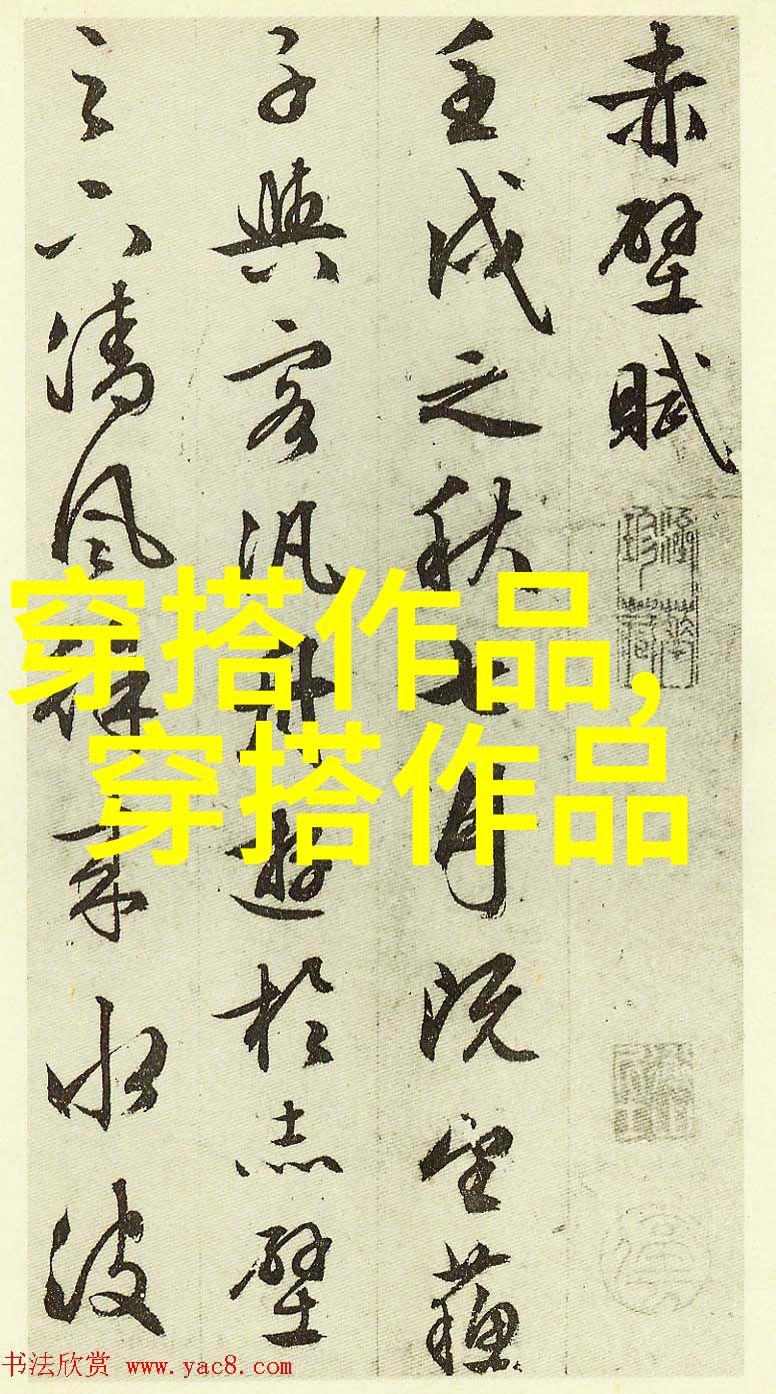 赤壁賦
壬戌之秋七月既望蘇
子與客汎舟遊於赤壁
之下清風徐来水波
穿搭作品,
穿搭作品
书法欣赏 www.yac8.com